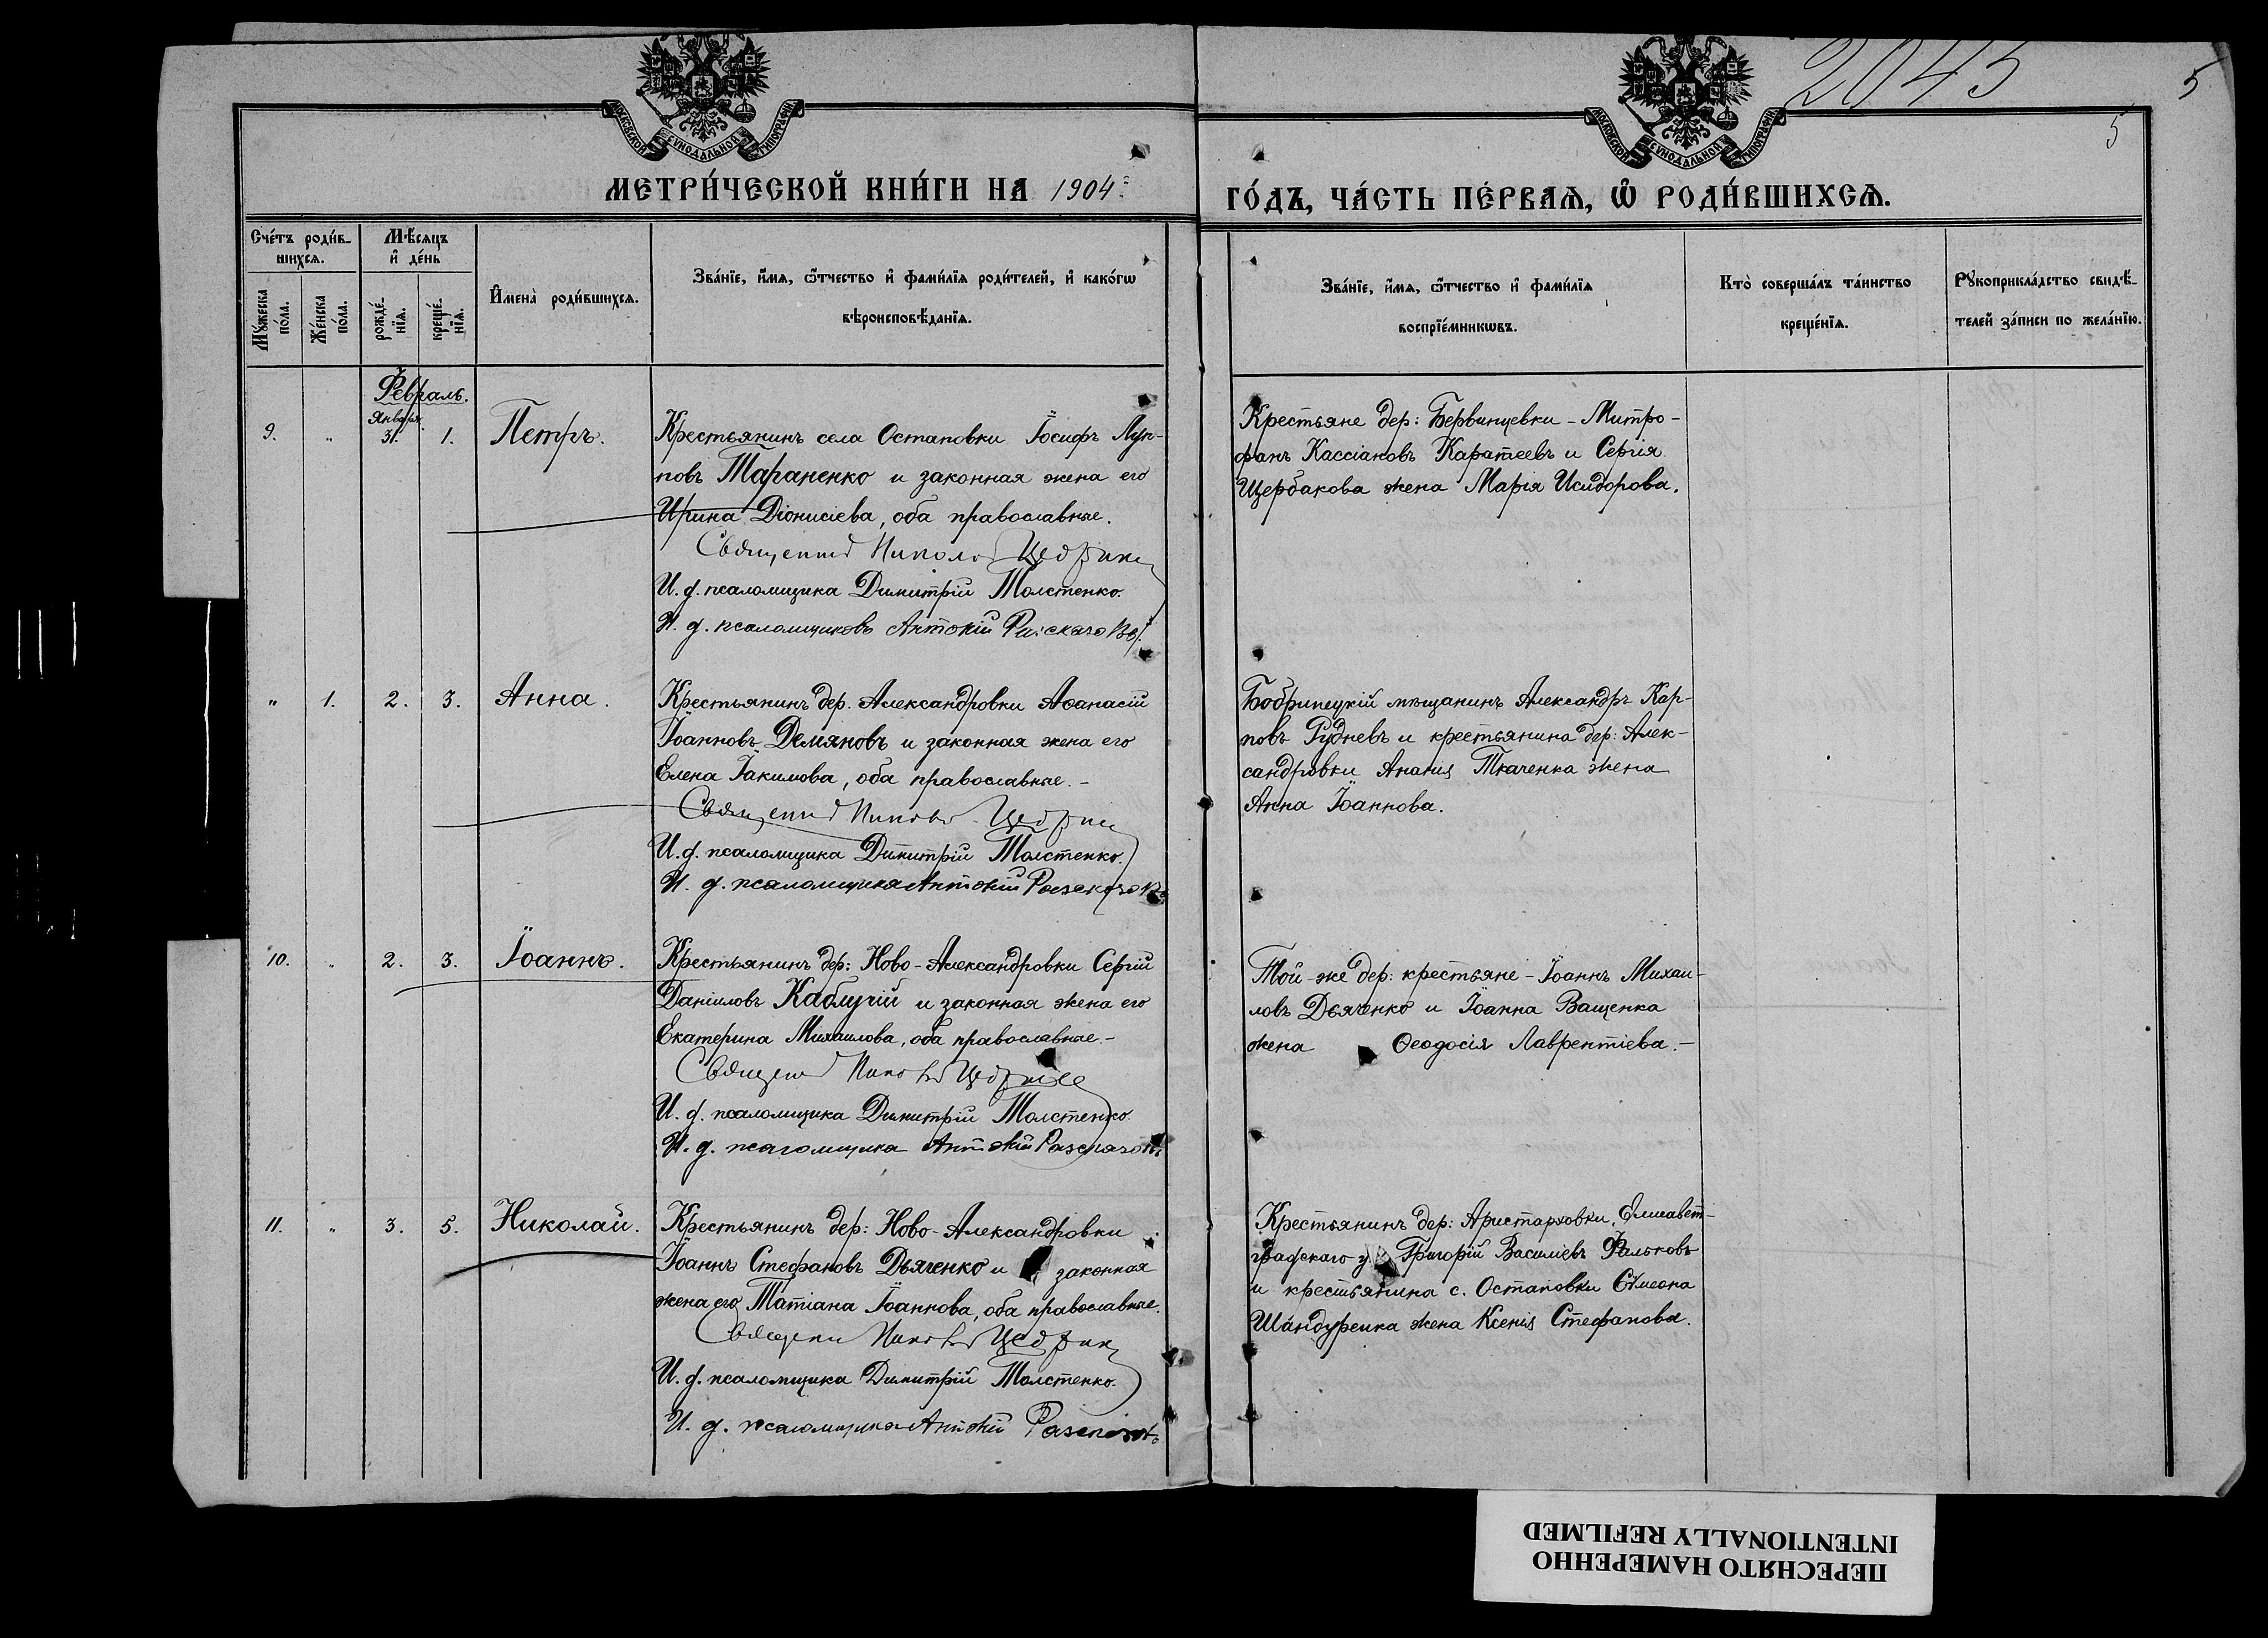 2045
5
5
МОСКОВСКОЙ СѴНОДАЛЬНОЙ ТИПОГРАФІИ
МОСКОВСКОЙ СѴНОДАЛЬНОЙ ТИПОГРАФІИ
МЕТРИ́ЧЕСКОЙ КНИ́ГИ НА 1904 г.
ГО́ДЪ, ЧА́СТЬ ПЕ́РВАѦ, Ѡ҆ РОДИ́ВШИХСѦ.
Сче́тъ роди́в-
шихсѧ.
Мѣ́сѧцъ
и҆ де́нь
Мꙋ́жеска
по́ла.
Же́нска
по́ла.
рожде́-
нїѧ.
креще́-
нїѧ.
И҆мена̀ роди́вшихсѧ.
Зва́нїе, и҆́мѧ, ѻ҆́тчество и҆ фами́лїѧ роди́телей, и҆ како́гѡ
вѣроисповѣ́данїѧ.
Зва́нїе, и҆́мѧ, ѻ҆́тчество и҆ фами́лїѧ
воспрїе́мникѡвъ.
Кто̀ соверша́лъ та́инство
креще́нїѧ.
Рꙋкоприкла́дство свидѣ́-
телей за́писи по жела́нїю.
Февраль.
Января.
9. " 31. 1. Петръ.
Крестьянинъ села Остаповки Іосифъ Луп-
повъ Тараненко и законная жена его
Ирина Діонисіева, оба православные.
Священникъ Николай
И. д. псаломщика Димитрій Толстенко.
И. д. псаломщиковъ Антоній
Крестьяне дер: Бервинцевки - Митро-
фанъ Кассіановъ Каратеевъ и Сергія
Щербакова жена Марія Исидорова.
" 1. 2. 3. Анна.
Крестьянинъ дер. Александровки Аѳанасій
Іоанновъ Демяновъ и законная жена его
Елена Іакимова, оба православные. -
Священникъ Николай
И. д. псаломщика Димитрій Толстенко.
И. д. псаломщика Антоній
Бобринецкій мѣщанинъ Александръ Кар-
повъ Рудневъ и крестьянина дер: Алек-
сандровки Ананія Ткаченка жена
Анна Іоаннова.
10. " 2. 3. Іоаннъ.
Крестьянинъ дер: Ново-Александровки Сергій
Даніиловъ Каблучій и законная жена его
Екатерина Михаилова, оба православные. -
Священникъ Николай
И. д. псаломщика Димитрій Толстенко.
И. д. псаломщика Антоній
Той-же дер: крестьяне - Іоаннъ Михаи-
ловъ Дьяченко и Іоанна Ващенка
жена Ѳеодосія Лаврентіева. -
11. " 3. 5. Николай.
Крестьянинъ дер: Ново-Александровки
Іоаннъ Стефановъ Дьяченко и законная
жена его Татіана Іоаннова, оба православные.
Священникъ Николай
И. д. псаломщика Димитрій Толстенко.
И. д. псаломщика Антоній
Крестьянинъ дер: Аристарховки, Елисавет-
градскаго у. Григорій Василіевъ Фальковъ
и крестьянина с. Остаповки Сѵмеона
Шандуренка жена Ксенія Стефанова.
ПЕРЕСНЯТО НАМЕРЕННО
INTENTIONALLY REFILMED